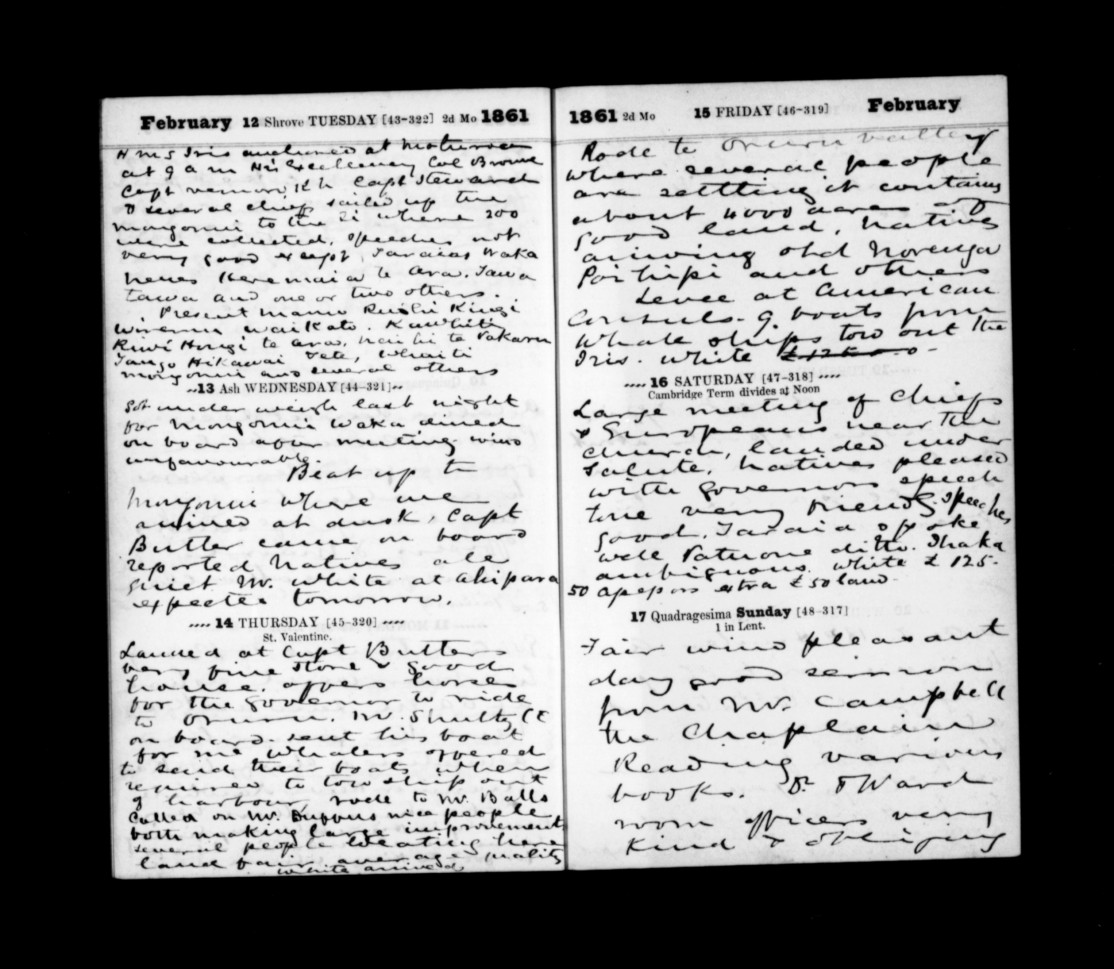 February 12 Shrove TUESDAY [43-322] 2d Mo 1861
H M S Iris anchored at
at 9 a m His Excellency Col Browne
Capt R N Capt Steward
& several chiefs sailed up the
mongonui to the where 200
were collected, speeches not
very good except, Taraias Waka
nenes Keremaia te Ara. Tawa
tawa and one or two others.
Present Kingi
Wiremu Waikato. Kawhiti
Kiwi Hongi te arao.
Hikawai Tete, Whaiti
mongonui and several others
13 Ash WEDNESDAY [44-321]
Got under weigh last night
for Mongonui Waka dined
on board after meeting. wind
unfavourable.
Beat up to
Mongonui where we
arrived at dusk, Capt
Butler came on board
reported Natives all
quiet Mr. White at Ahipara
expected tomorrow.
14 THURSDAY [45-320]
St. Valentine.
Landed at Capt Butlers
very fine store & good
house. offers horses
for the Governor to ride
to Oruru. Mr.
on board. sent his boat
for me Whalers offered
to send their boats when
required to tow ship out
of harbour, rode to Mr. Balls
Called on Mr. nice people
both making large improvements
several people locating here
land fair average quality
White arrived
1861 2d Mo 15 FRIDAY [46-319] February
Rode to Oruru valley
where several people
are settling it contains
about 4000 acres of
good land, Natives
arriving old
and others
Levee at American
Consuls. 9 boats from
Whale ships tow out the
Iris. White
16 SATURDAY [47-318]
Cambridge Term divides at Noon
Large meeting of Chiefs
& Europeans near the
church, landed under
salute. Natives pleased
with Governors speech
tone very friendly. speeches
good. Taraia spoke
well Patuone ditto. Ihaka
ambiguous. White £ 125.
50 extra £ 50 land.
17 Quadragesima Sunday [48-317]
1 in Lent.
Fair wind pleasant
day good sermon
from Mr. Campbell
the Chaplain
Reading various
books. & Ward
room officers very
kind & obliging